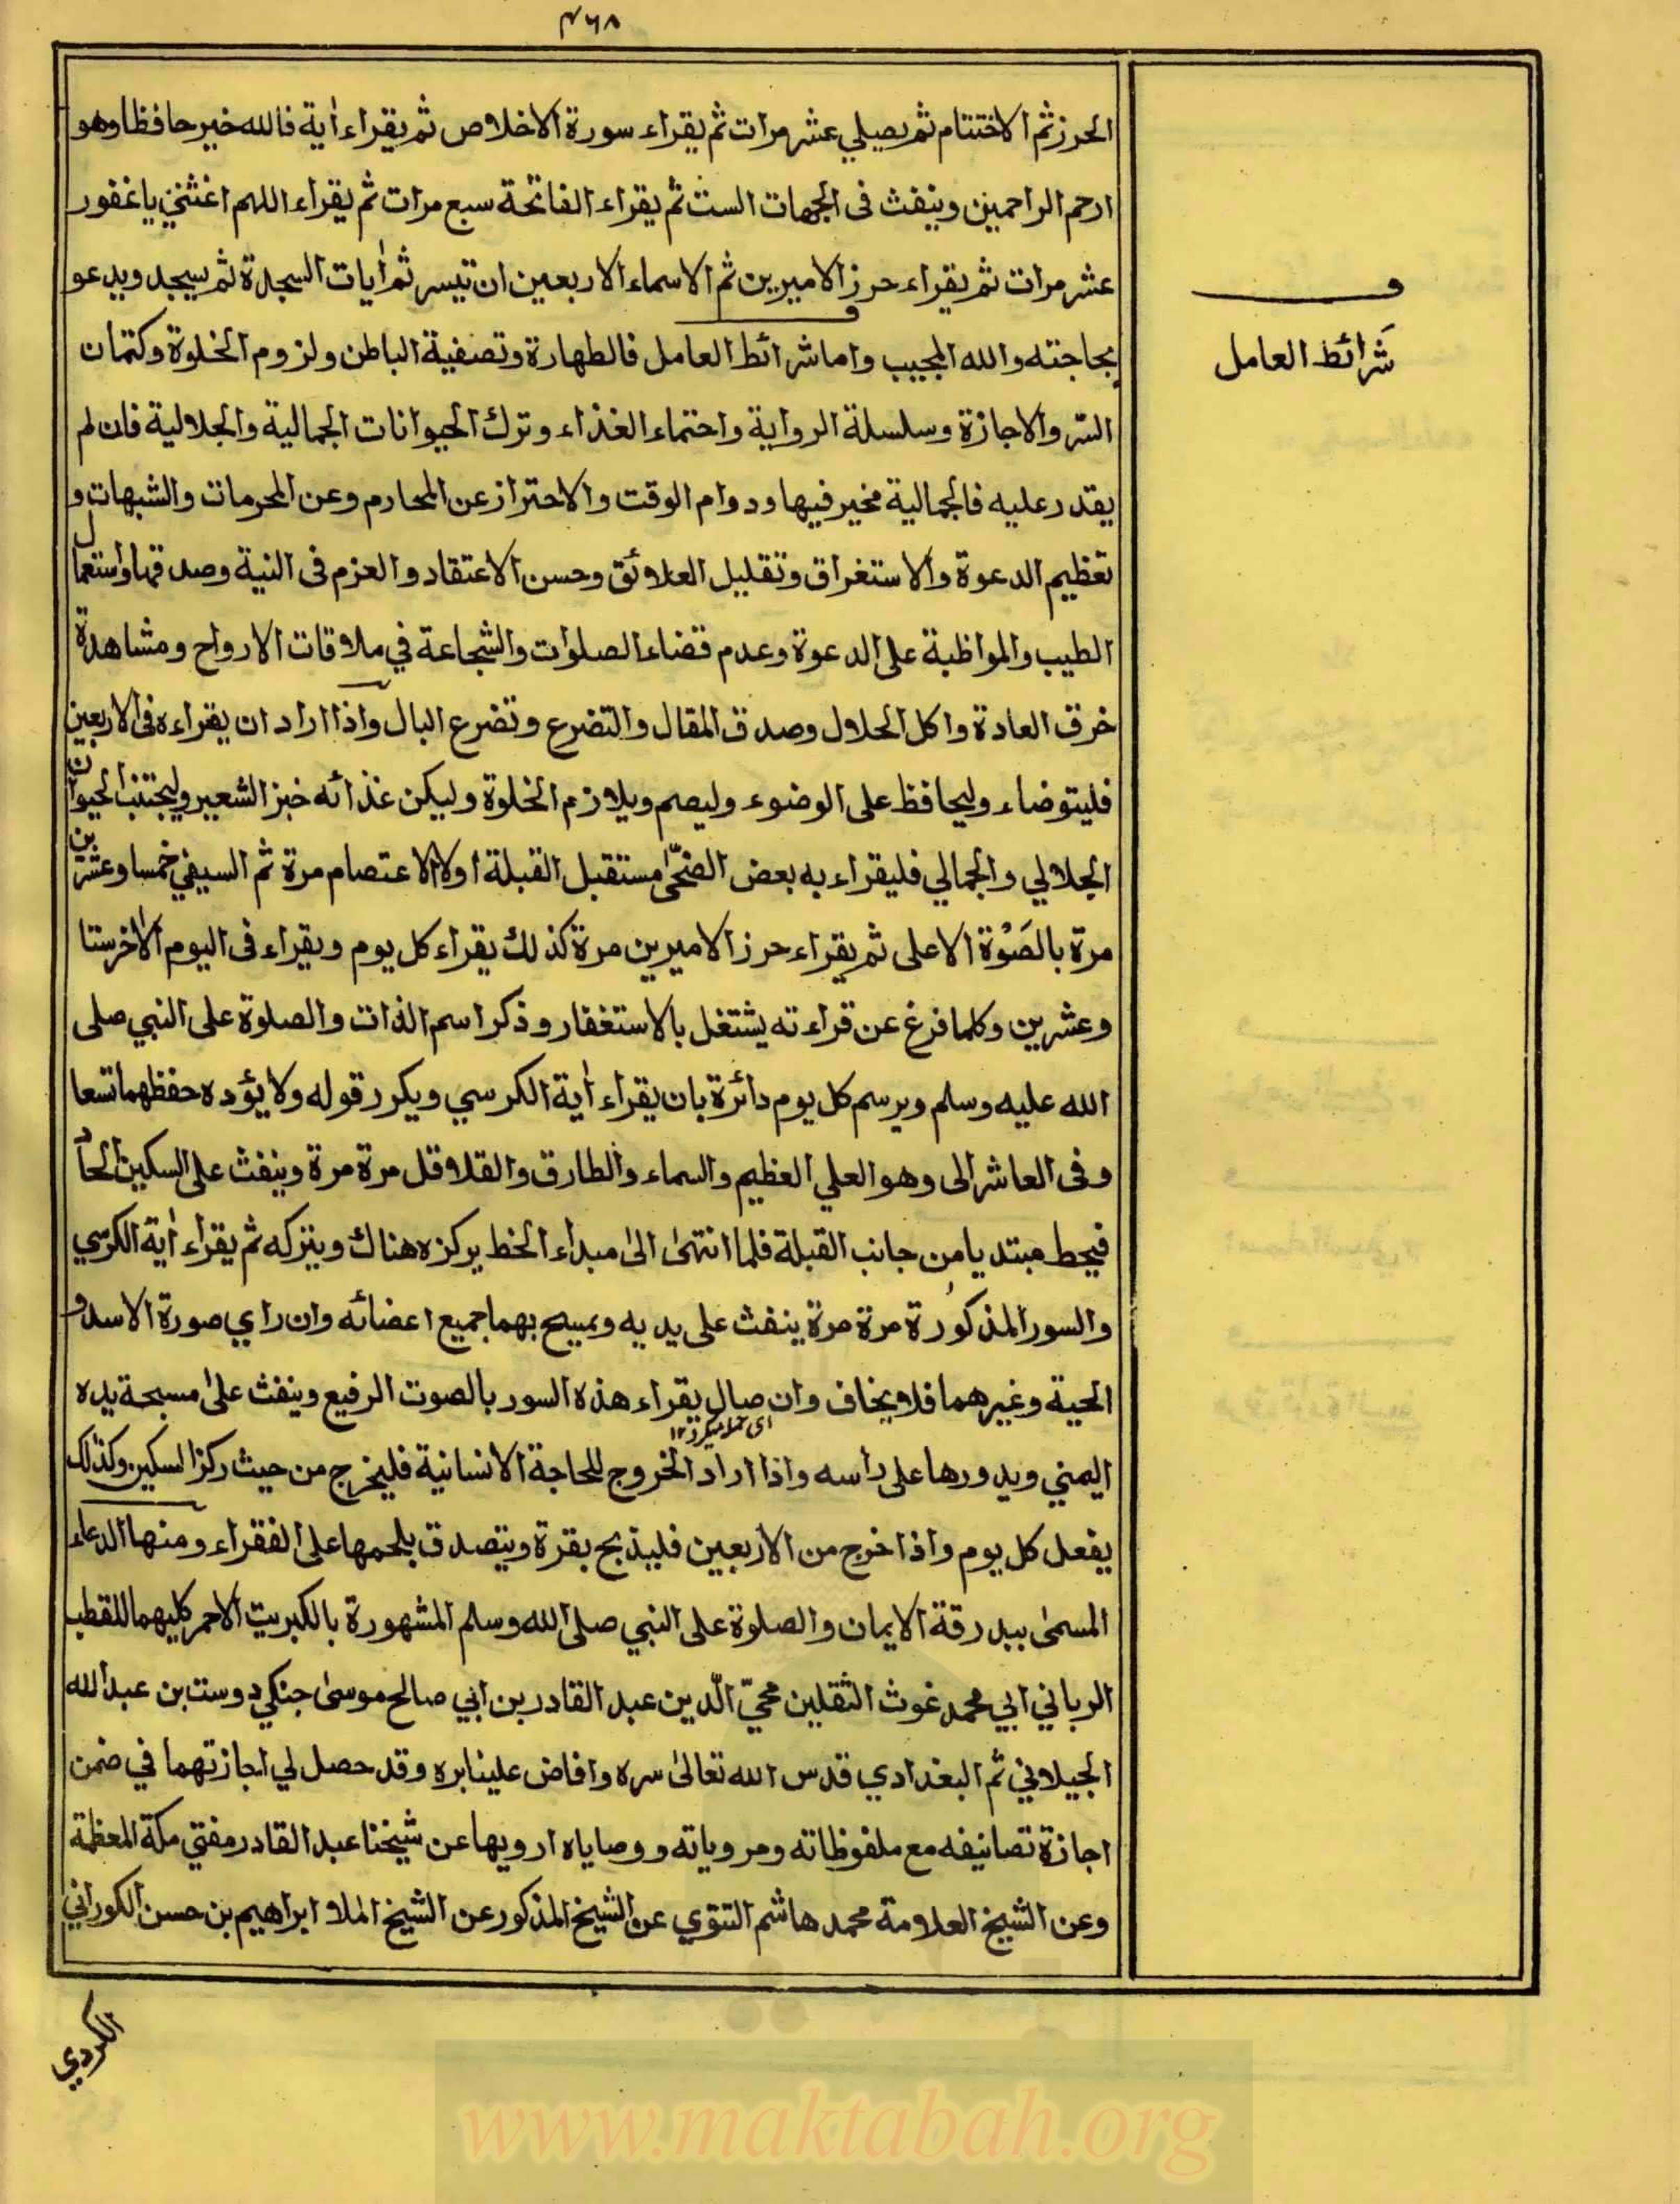 ٤٦٨
الحرز ثم الاختتام ثم يصلي عشر مرات ثم يقراء سورة الاخلاص ثم يقراء اٰية فالله خير حافظا وهو
ارحم الراحمين وينفث فى الجهات الست ثم يقراء الفاتحة سبع مرات ثم يقراء اللهم اغثني يا غفور
عشر مرات ثم يقراء حرز الاميرين ثم الاسماء الاربعين ان تيسر ثم اٰيات السجدة ثم يسجد ويدعو
بحاجته والله المجيب واما شرائط العامل فالطهارة وتصفية الباطن ولزوم الخلوة وكتمان
شَرائط العامل
السّر والاجازة وسلسلة الرواية واحتماء الغذاء وترك الحيوانات الجمالية والجلالية فان لم
يقدر عليه فالجمالية مخير فيها ودوام الوقت والاحتراز عن المحارم وعن المحرمات والشبهات و
تعظيم الدعوة والاستغراق وتقليل العلائق وحسن الاعتقاد والعزم فى النية وصدقها واستعمال
الطيب والمواظبة على الدعوة وعدم قضاء الصلوات والشجاعة في ملاقات الارواح ومشاهدة
خرق العادة واكل الحلال وصدق المقال والتضرع وتضرع البال واذا اراد ان يقراءه فى الاربعين
فليتوضاء وليحافظ على الوضوء وليصم ويلازم الخلوة وليكن غذائه خبز الشعير وليجتنب الحيوان
الجلالي والجمالي فليقراء به بعض الضحٰى مستقبل القبلة اولا الاعتصام مرة ثم السيفي خمسا وعشرين
مرة بالصَوْة الاعلى ثم يقراء حرز الاميرين مرة كذلك يقراء كل يوم ويقراء فى اليوم الاٰخر ستا
وعشرين وكلما فرغ عن قراءته يشتغل بالاستغفار وذكر اسم الذات والصلوة على النبي صلى
الله عليه وسلم ويرسم كل يوم دائرة بان يقراء اٰية الكرسي ويكرر قوله ولا يؤده حفظهما تسعا
وفى العاشر الى وهو العلي العظيم والسماء والطارق والقلاقل مرة مرة وينفث على السكين الحاد
فيحط مبتديا من جانب القبلة فلما انتهىٰ الىٰ مبداء الخط يركزه هناك ويتركه ثم يقراء اٰية الكرسي
والسور المذكورة مرة مرة ينفث على يديه ويمسح بهما جميع اعضائه وان راي صورة الاسد و
الحية وغيرهما فلا يخاف وان صال يقراء هذه السور بالصوت الرفيع وينفث علىٰ مسبحة يده
اى حملہ میکرد ١٢
اليمني ويدورها على راسه واذا اراد الخروج للحاجة الانسانية فليخرج من حيث ركز السكين وكذلك
يفعل كل يوم واذا خرج من الاربعين فليذبح بقرة ويتصدق بلحمها على الفقراء ومنها الدعاء
المسمىٰ ببدرقة الايمان والصلوة على النبي صلى الله وسلم المشهورة بالكبريت الاحمر كليهما للقطب
الرباني ابي محمد غوث الثقلين محيّ الّدين عبد القادر بن ابي صالح موسىٰ جنكي دوست بن عبد الله
الجيلاني ثم البغدادي قدس الله تعالىٰ سره وافاض علينا بره وقد حصل لي اجازتهما في ضمن
اجازة تصانيفه مع ملفوظاته ومروياته ووصاياه ارويها عن شيخنا عبد القادر مفتي مكة المعظمة
وعن الشيخ العلامة محمد هاشم التتوي عن الشيخ المذكور عن الشيخ الملا ابراهيم بن حسن الكوراني
الكردي
www.maktabah.org